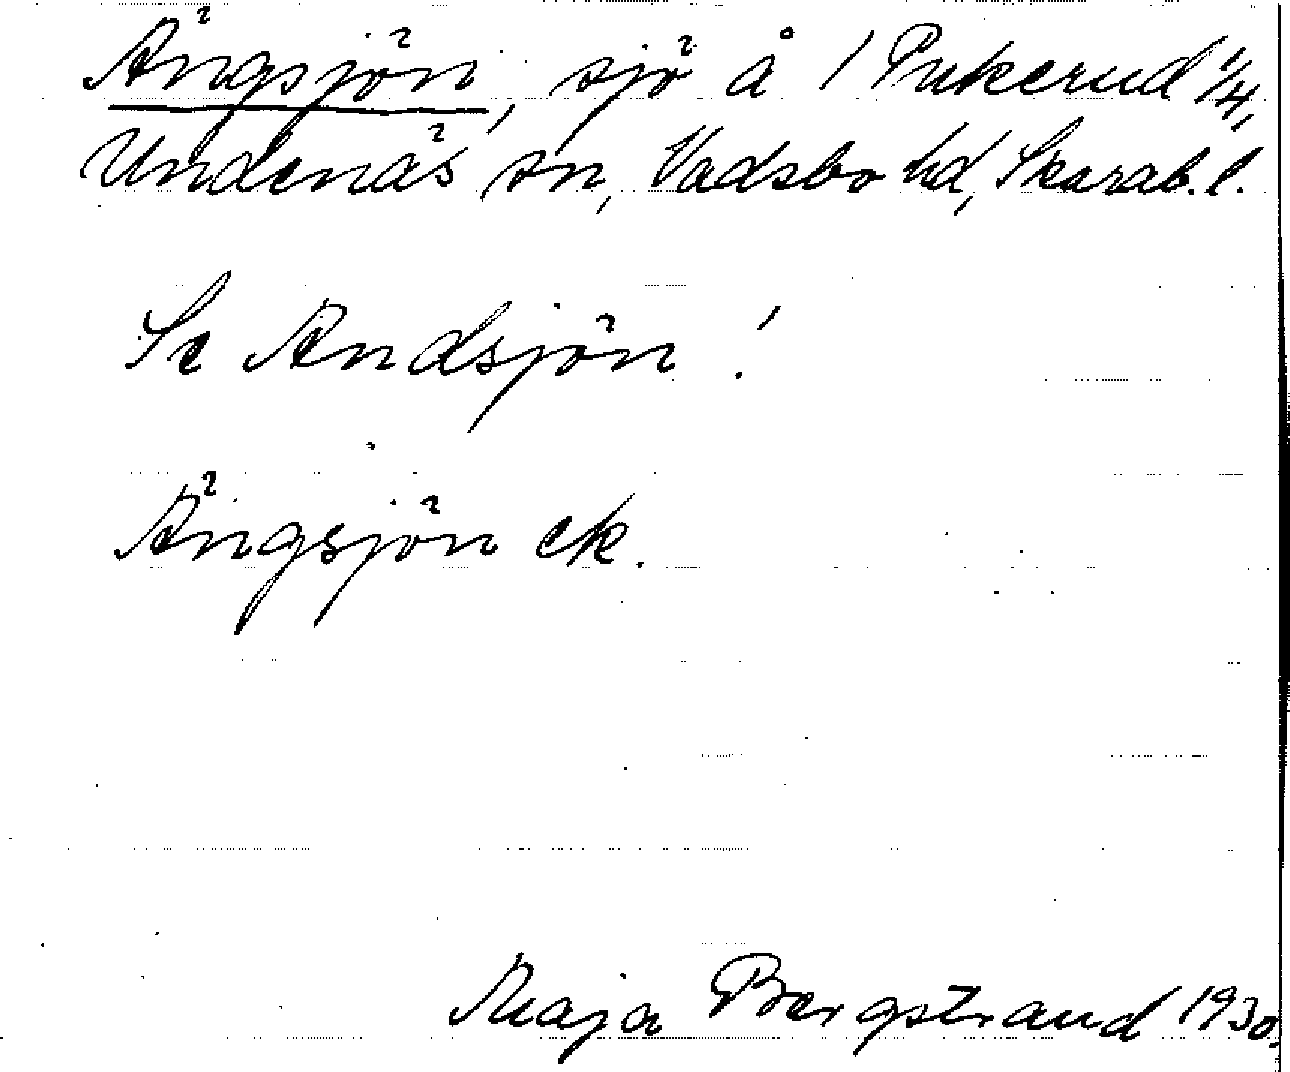 Ängsjön, sjö å 1 Pukerud 1/4,
Undenäs sn, Vadsbo hd, Skarab. l.
Se Andsjön!
Ängsjön ek.
Maja Bergstrand 1930.